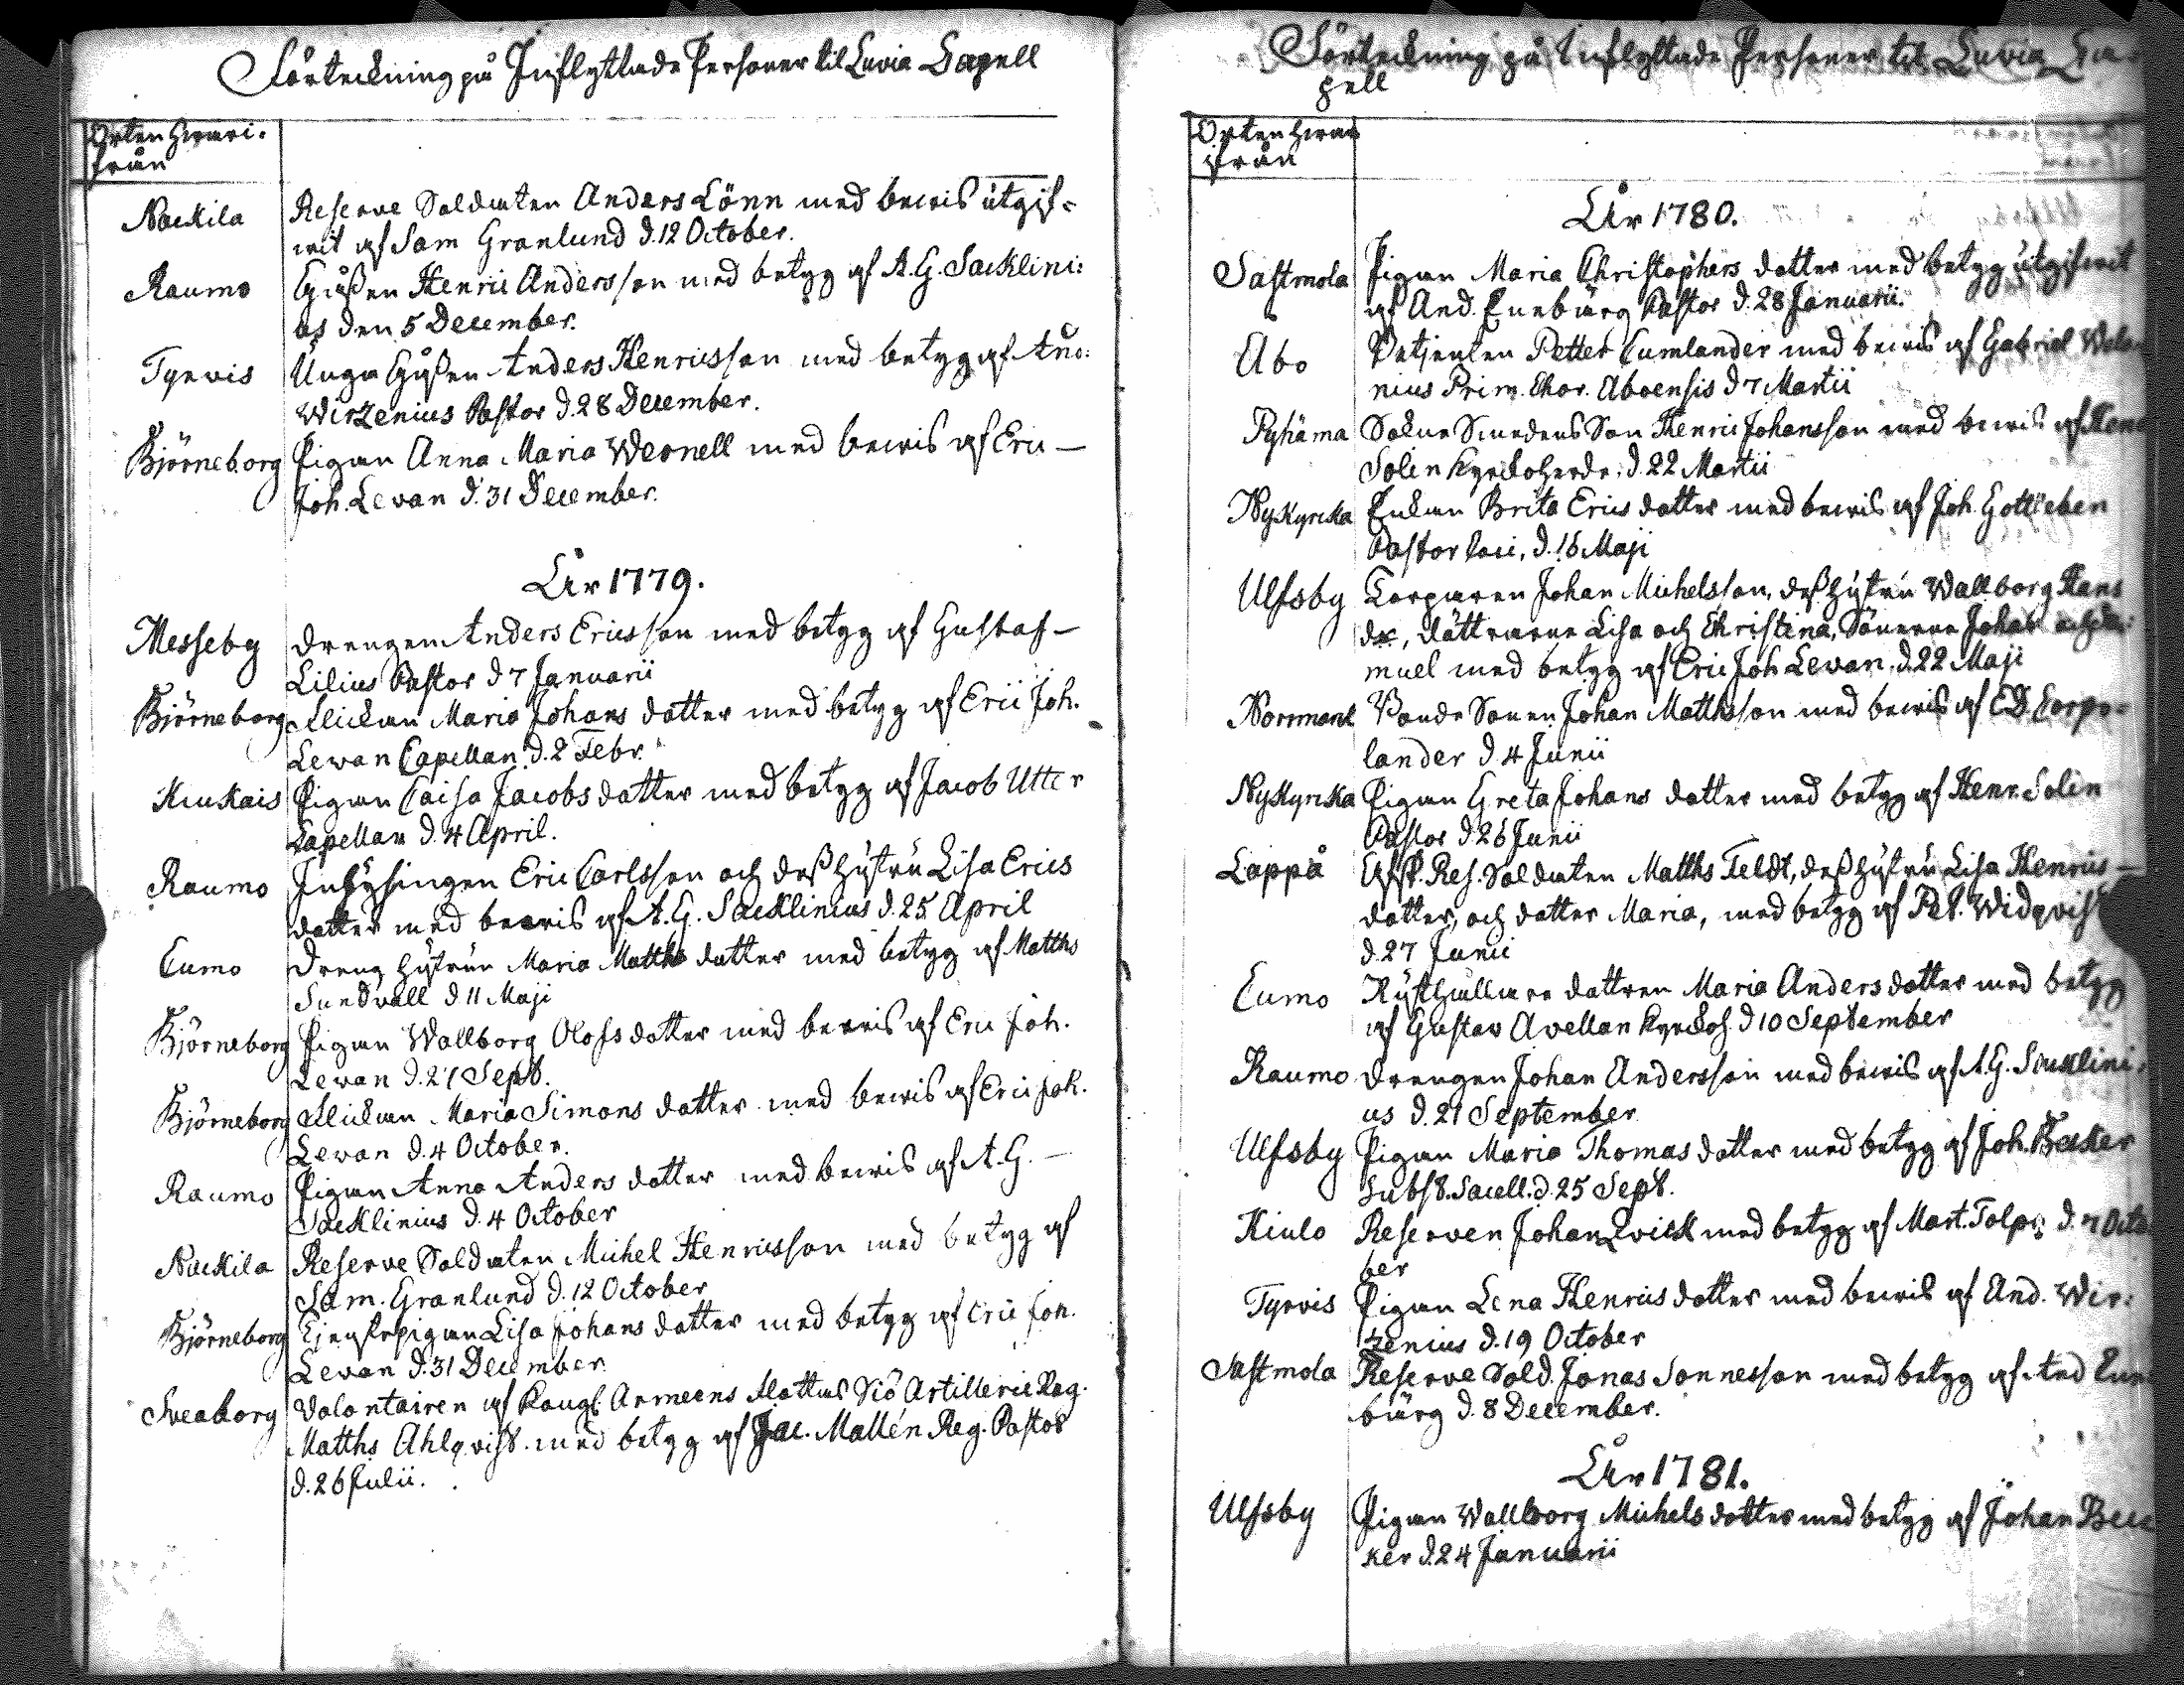 Förteckning på Inflyttade Personer til Luvia Capell
Orten hwari-
från
Nackila Reserve Soldaten Anders Lönn med bewis utgif-
wit af Sam Granlund d. 12 October.
Raumo Gåßen Henric Andersson med betyg af A. G. Sacklini:
us den 5 December.
Tyrvis Unga Gåßen Anders Henricsson med betyg af
Wirzenius Pastor d. 28 December.
Björneborg Pigan Anna Maria Wernell med bewis af Eric
Joh. Levan d. 31 December.
År 1779.
Messeby Drengen Anders Ericsson med betyg af Gustaf
Lilius Pastor d 7 Januarii
Björneborg Flickan Maria Johans dotter med betyg af Eric Joh.
Levan Capellan d. 2 Febr.
Kiukais Pigan Caisa Jacobs dotter med betyg af Jacob Utter
Capellan d. 4 April.
Raumo Inhysingen Eric Carlsson och deß hustru Lisa Erics
dotter med bewis af A. G. Sacklinius d. 25 April
Cumo Dreng hustrun Maria Matths dotter med betyg af Matths
Sundvall d 11 Maji
Björneborg Pigan Wallborg Olofs dotter med bewis af Eric Joh.
Levan d. 21 Sept.
Björneborg Flickan Maria Simons dotter med bewis af Eric Joh.
Levan d. 4 October.
Raumo Pigan Anna Anders dotter med bewis af A. G.
Sacklinius d. 4 October
Nackila Reserve Soldaten Michel Henricsson med betyg af
Sam. Granlund d. 12 October
Björneborg Tjenstepigan Lisa Johans dotter med betyg af Eric Joh.
Levan d. 31 December
Sveaborg Volontairen af Kongl. Armeens Flottas Siö Artillerie Reg.
Matths Ahlqvist med betyg af Jac. Mallén Reg. Pastor
d. 26 Julii.
Förteckning på Inflyttade Personer til Luvia Ca-
pell
Orten hwar
ifrån
År 1780.
Sastmola Pigan Maria Christophers dotter med betyg utgifwit
af And. Eneburg Pastor d. 28 Januarii.
Åbo Betjenten Petter Cumlander med bewis af Gabriel
nius Prim. Chor. Aboensis d 7 Martii
Pyhäma Sokne Smedens Son Henric Johansson med bewis af
Solin Kyrckoherde d. 22 Martii
Nykyrcka Enkan Brita Erics dotter med bewis af Joh. Gottleben
Pastor loci, d. 16 Maji
Ulfsby Torparen Johan Michelsson, deß hustru Wallborg Hans
dr, döttrarne Lisa och Christina, Sönerne Johan och Sa:
muel med betyg af Eric Joh Levan. d. 22 Maji
Norrmark Bonde Sonen Johan Matthsson med bewis af
lander d 4 Junii
Nykyrcka Pigan Greta Johans dotter med betyg af Henr. Solin
Pastor d 26 Junii
Lappå Afsk. Res. Soldaten Matths Feldt, deß hustru Lisa Henrics
dotter, och dotter Maria, med betyg af Pet. Widqvist
d. 27 Junii
Cumo Rusthållare dottren Maria Anders dotter med betyg
af Gustav Avellan Kyrckoh. d 10 September
Raumo Drengen Johan Andersson med bewis af A. G. Sacklini-
us d. 21 September
Ulfsby Pigan Maria Thomas dotter med betyg af Joh. Becker
Subst. Sacell. d. 25 Sept.
Kiulo Reserven Johan Qvick med betyg af Mart. Tolpo d. 7 Octo
ber
Tyrvis Pigan Lena Henrics dotter med bewis af And. Wir:
zenius d. 19 October
Sastmola Reserve Sold. Jonas Sonnesson med betyg af And Ene
burg d. 8 December.
År 1781.
Ulfsby Pigan Wallborg Michels dotter med betyg af Johan Bec
ker d. 24 Januarii